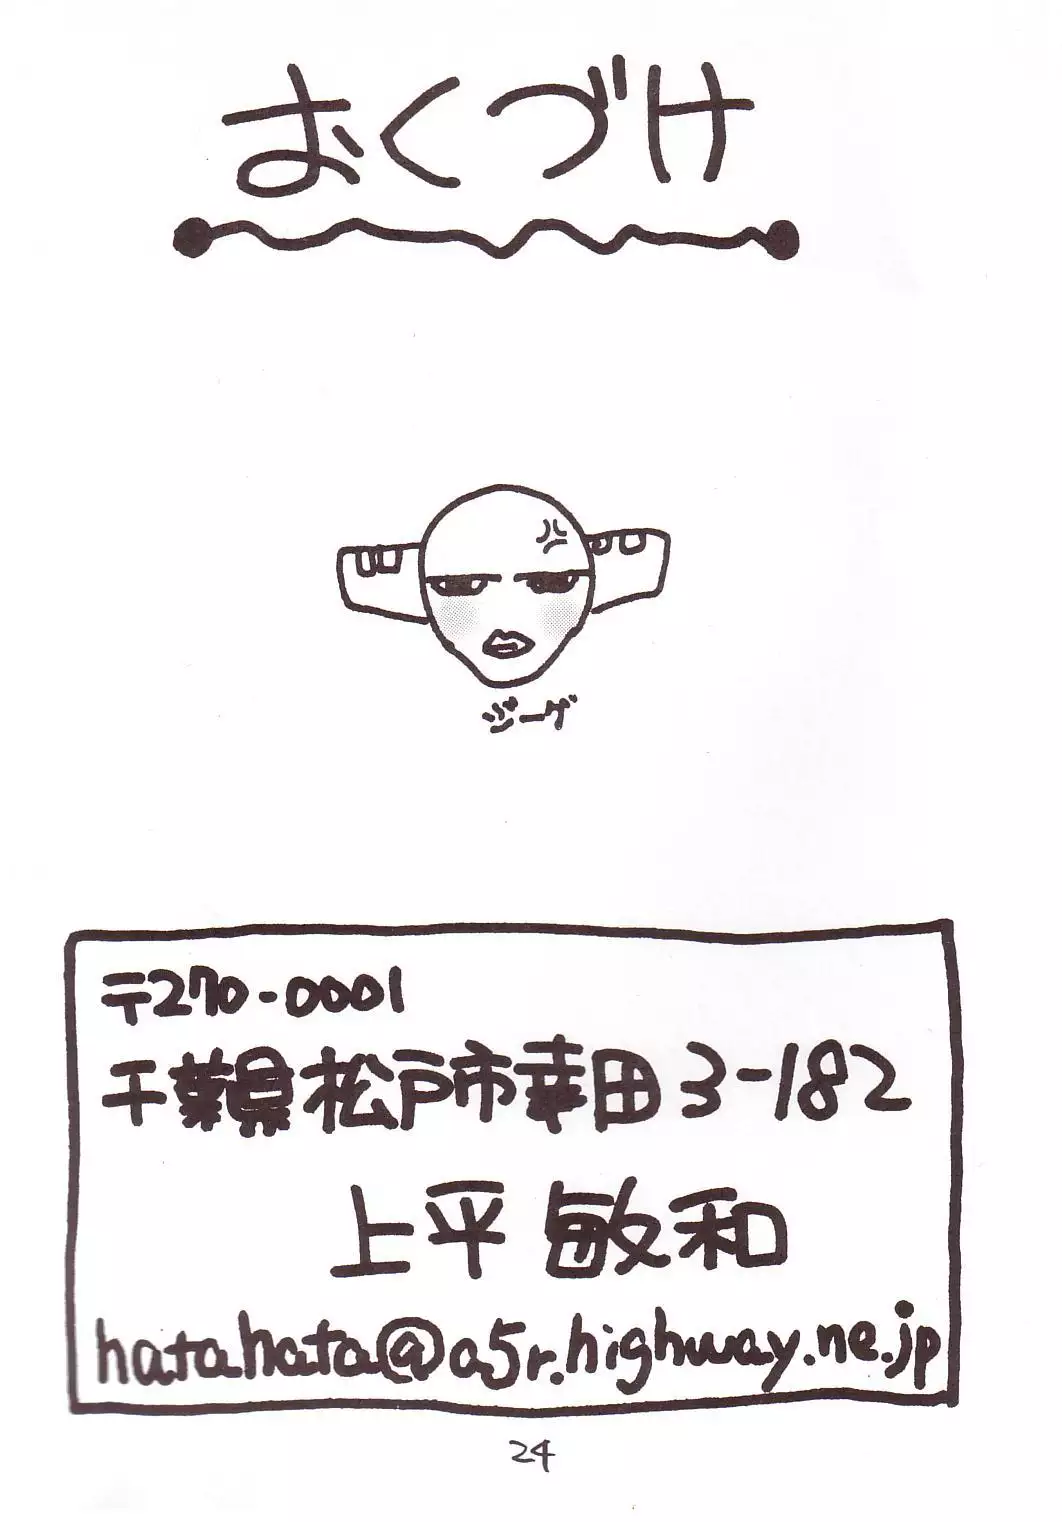 おくづけ
ジーグ
〒270-0001
千葉県松戸市幸田3-182
上平 敏和
hatahata@a5r.highway.ne.jp
24